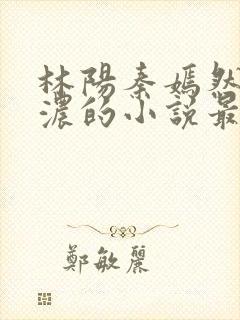 林陽秦嫣然
濃的小說最
鄭敏麗